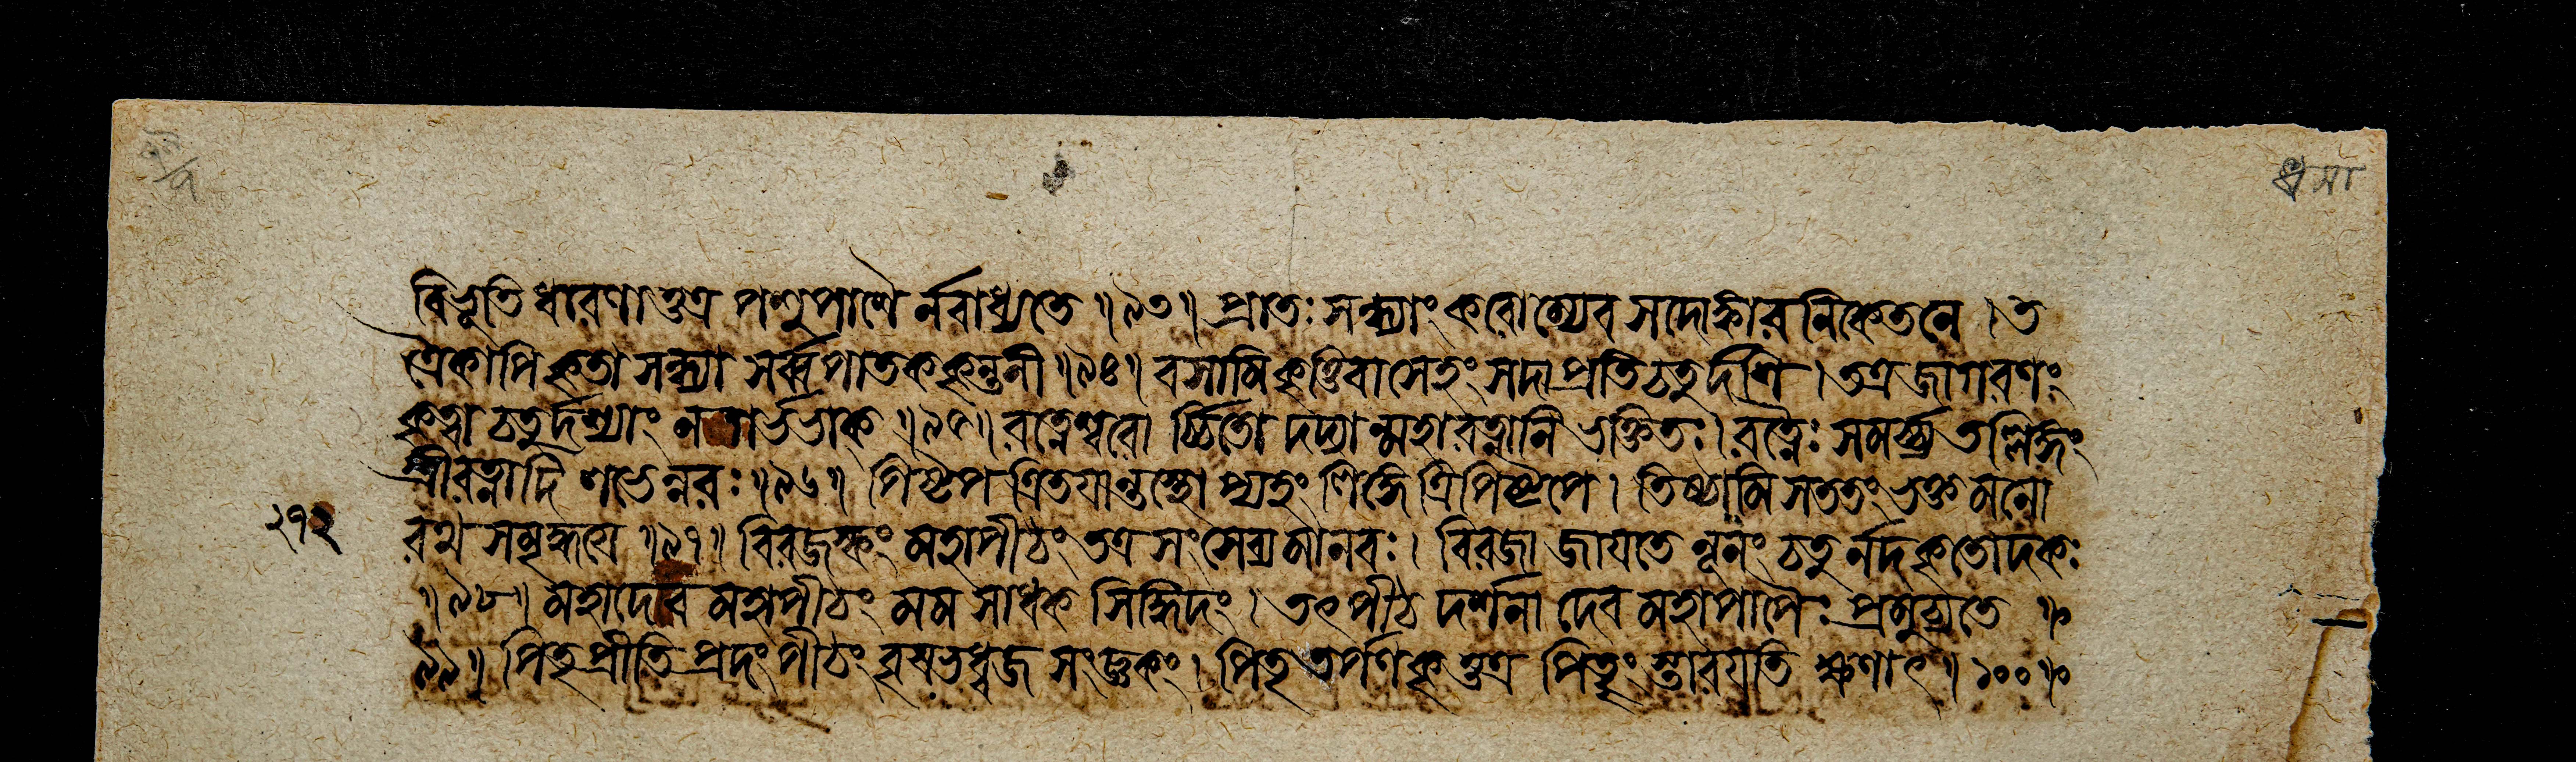 বিভূতিধারণাত্তত্র পশুপাশৈর্নবাধ্যতে ॥ ৯৩ ॥ প্রাতঃ সন্ধ্যাং করোম্যেব সদোঙ্কারনিকেতনে । ত
ত্রৈকাপি কৃতা সন্ধ্যা সর্ব্বপাতককৃন্তনী ॥ ৯৪ ॥ বসামি কৃত্তিবাসেহং সদা প্রতিচতুর্দশি । তত্র জাগরণং
কৃত্বা চতুর্দশ্যাং ন গর্ভভাক্ ॥ ৯৫ ॥ রত্নেশ্বরোর্চ্চিতো দদ্যান্মহারত্নানি ভক্তিতঃ । রত্নৈঃ সমর্চ্চ্য তল্লিঙ্গং
স্ত্রীরত্নাদি লভেন্নরঃ ॥ ৯৬ ॥ বিষ্টপত্রিতয়ান্তস্থোপ্যহং লিঙ্গে ত্রিপিষ্টপে । তিষ্ঠামি সততং ভক্তমনো
২৭২ রথসমৃদ্ধয়ে ॥ ৯৭ ॥ বিরজস্কং মহাপীঠং তত্র সংসেব্য মানবঃ । বিরজা জায়তে নূনং চতুর্নদকৃতোদকঃ
॥ ৯৮ ॥ মহাদেব মহাপীঠং মম সাধকসিদ্ধিদং । তৎপীঠদর্শনাদেব মহাপাপৈঃ প্রমুচ্যতে ॥
৯৯ ॥ পিতৃপ্রীতিপ্রদং পীঠং বৃষভধ্বজসংজ্ঞকং । পিতৃতর্পণকৃত্তত্র পিতৄংস্তারয়তি ক্ষণাৎ ॥ ১০০ ॥